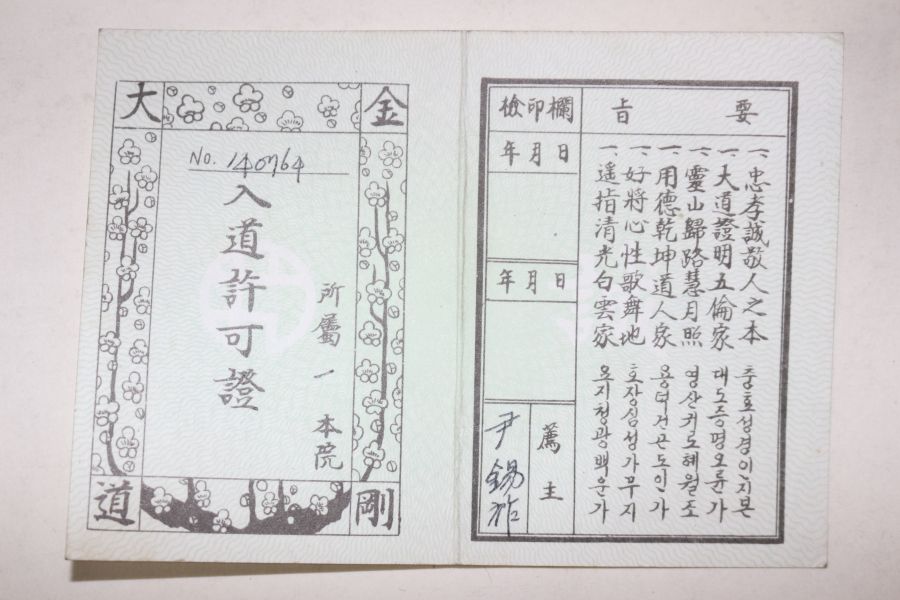 金剛
大道
No. 140764
入道許可證
所屬 一 本院
要旨
一、忠孝誠敬人之本 충효성경인지본
一、大道證明五倫家 대도증명오륜가
一、靈山歸路慧月照 영산귀로혜월조
一、用德乾坤道人家 용덕건곤도인가
一、好將心性歌舞地 호장심성가무지
一、遙指清光白雲家 요지청광백운가
檢印欄
年月日
年月日
薦主